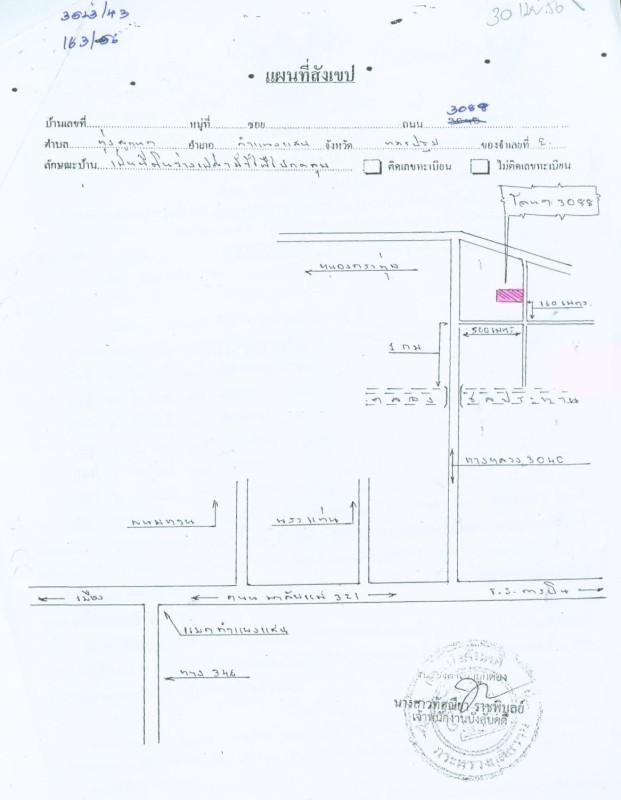 3523/43
163/56
30 เมย 56
แผนที่สังเขป
3088
บ้านเลขที่ หมู่ที่ ซอย ถนน 3040
ตำบล ทุ่งลูกนก อำเภอ กำแพงแสน จังหวัด นครปฐม ของจำเลยที่
ลักษณะบ้าน เป็นที่ดินว่างเปล่า ติดเลขทะเบียน ไม่ติดเลขทะเบียน
โฉนด 3088
หนองกระทุ่ม
160 เมตร
500 เมตร
1 กม
คลอง ชลประทาน
ทางหลวง 3040
พนมทวน
พระแท่น
เมือง
ถนน มาลัยแมน 321
ร.ร. การบิน
แยก กำแพงแสน
ทาง 346
นางสาวทัศณียา ราชพิบูลย์
เจ้าพนักงานบังคับคดี